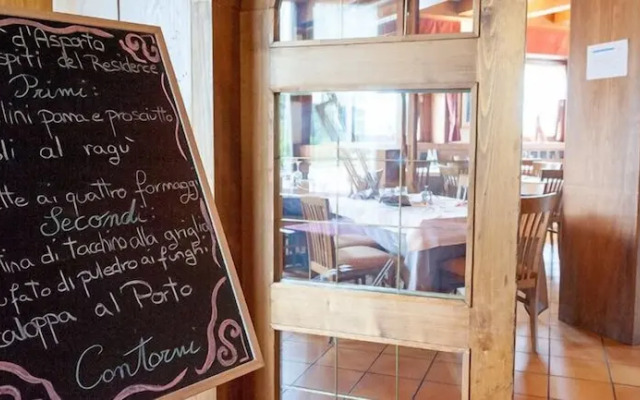 d'Asporto
ospiti del Residence
Primi:
llini pama e prosciutto
oli al ragù
tte ai quattro formaggi
Secondi:
tina di tacchino alla griglia
ufato di puledro ai funghi
caloppa al Porto
Contorni